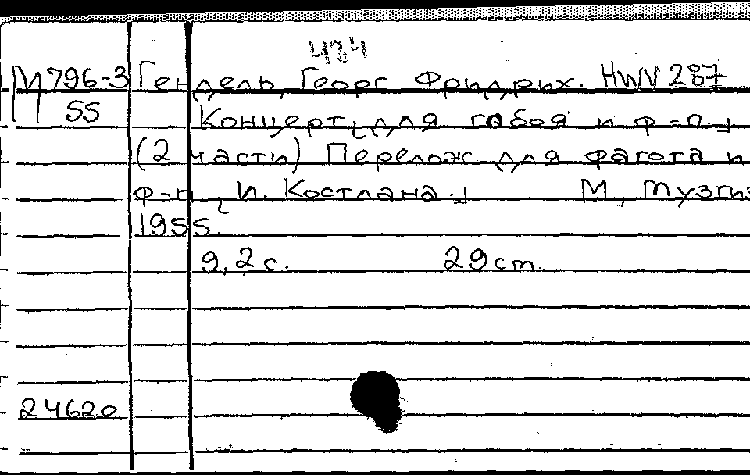 484
М796-3 Гендель, Георг Фридрих. HWV 287
55 Концерт, для гобоя и ф=п.,
(2 части) Перелож для фагота и
ф=п, И. Костлана., М, Музгиз
1955.
9, 2 с. 29 cm.
24620